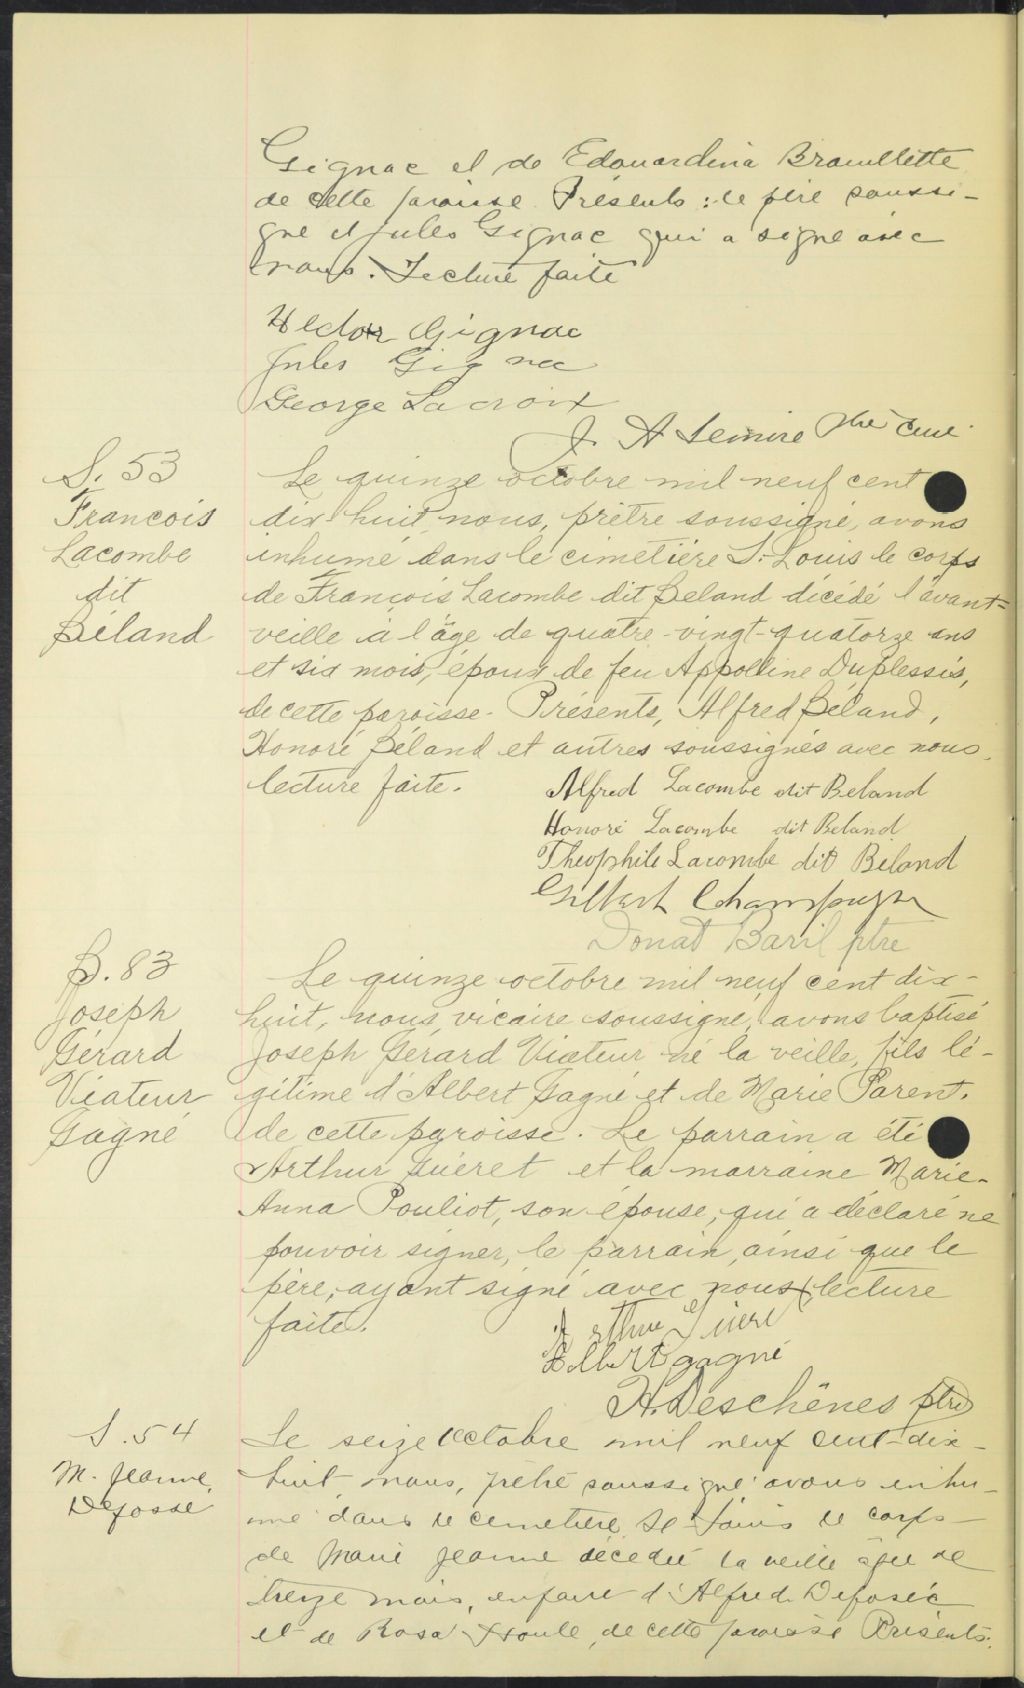 Gignac et de Edouardina Brouillette
de cette paroisse. Présents : le père soussi-
gné et Jules Gignac qui a signé avec
nous. Lecture faite
Hector Gignac
Jules Gignac
George Lacroix
J. A Lemire Ptre Curé
S. 53
François
Lacombe
dit
Béland
Le quinze octobre mil neuf cent
dix-huit, nous, prêtre soussigné, avons
inhumé dans le cimetière S.-Louis le corps
de François Lacombe dit Béland décédé l'avant-
veille à l'âge de quatre-vingt-quatorze ans
et six mois, époux de feu Appolline Duplessis,
de cette paroisse. Présents, Alfred Béland,
Honoré Béland et autres soussignés avec nous.
lecture faite.
Alfred Lacombe dit Beland
Honoré Lacombe dit Beland
Theophile Lacombe dit Béland
Gilbert Champagne
Donat Baril ptre
B. 83
Joseph
Gérard
Viateur
Gagné
Le quinze octobre mil neuf cent dix-
huit, nous, vicaire soussigné, avons baptisé
Joseph Gérard Viateur né la veille, fils lé-
gitime d'Albert Gagné et de Marie Parent,
de cette paroisse. Le parrain a été
Arthur Guéret et la marraine Marie-
Anna Pouliot, son épouse, qui a déclaré ne
pouvoir signer, le parrain, ainsi que le
père, ayant signé avec nous, lecture
faite.
Arthur Guéret
Albert gagné
H. Deschênes ptre
S. 54
M. Jeanne
Defossé
Le seize octobre mil neuf cent-dix-
huit, nous, prêtre soussigné avons inhu-
mé dans le cemetière St Louis le corps
de Marie Jeanne décédée la veille âgée de
treize mois, enfant d'Alfred Defossé
et de Rosa Houle, de cette paroisse Présents: